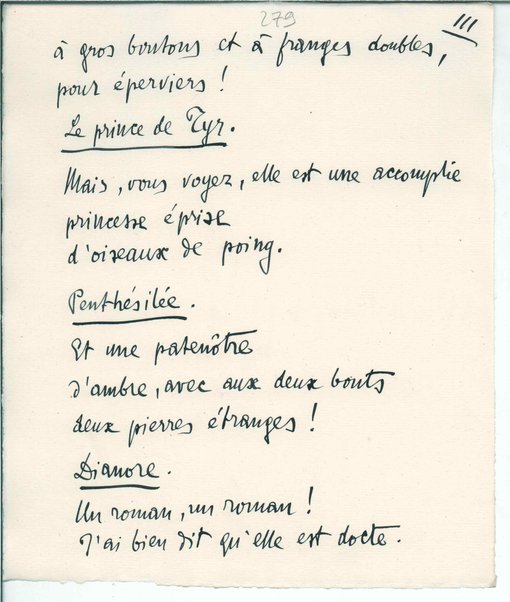 279
III
à gros boutons et à franges doubles,
pour éperviers !
Le prince de Tyr.
Mais, vous voyez, elle est une accomplie
princesse éprise
d'oiseaux de poing.
Penthésilée.
Et une patenôtre
d'ambre, avec aux deux bouts
deux pierres étranges !
Dianore.
Un roman, un roman !
J'ai bien dit qu'elle est docte.